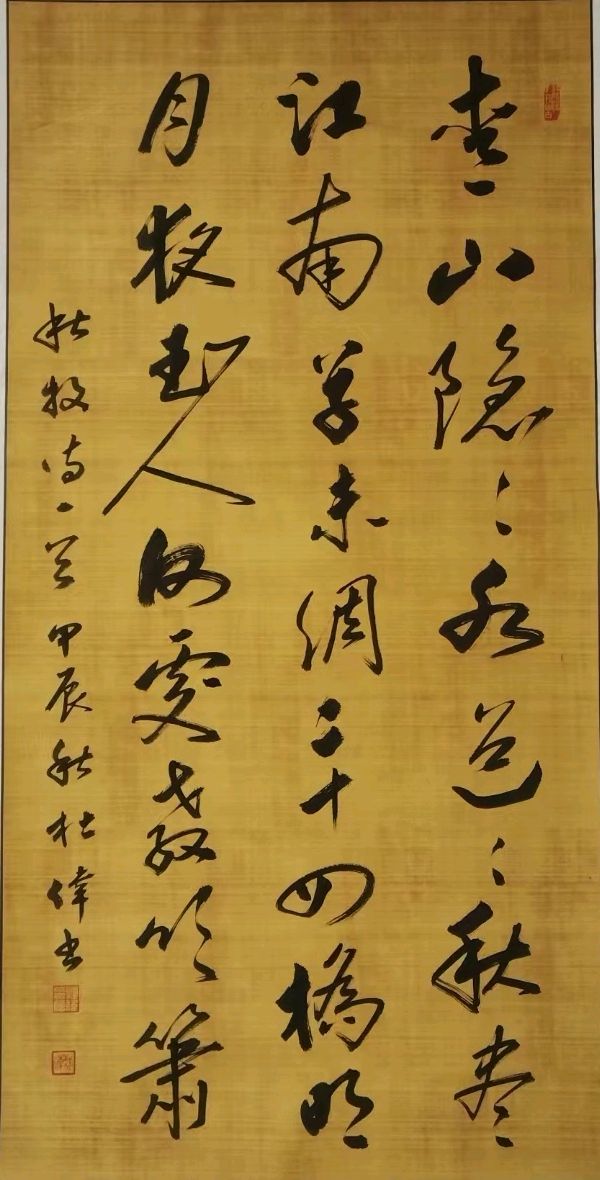 青山隐々水迢々秋尽
江南草未凋二十四橋明
月夜玉人何處教吹簫
杜牧诗一首甲辰秋杜偉书